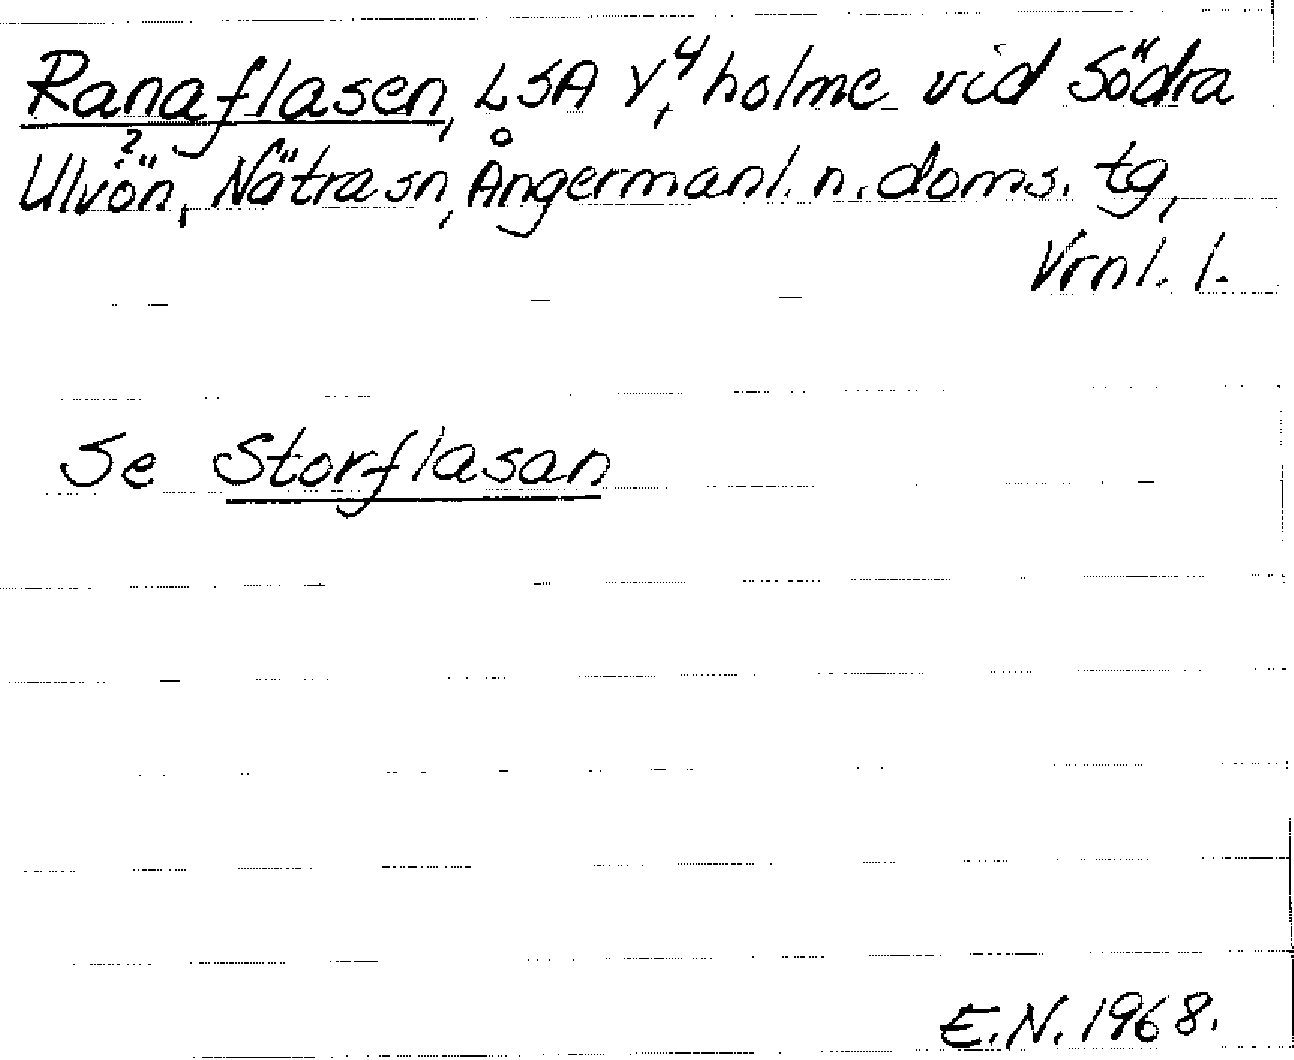 Ranaflasen, LSA Y,4 holme vid Södra
?
Ulvön, Nätra sn, Ångermanl. n. doms. tg,
Vrnl. l.
Se Storflasan
E.N. 1968.